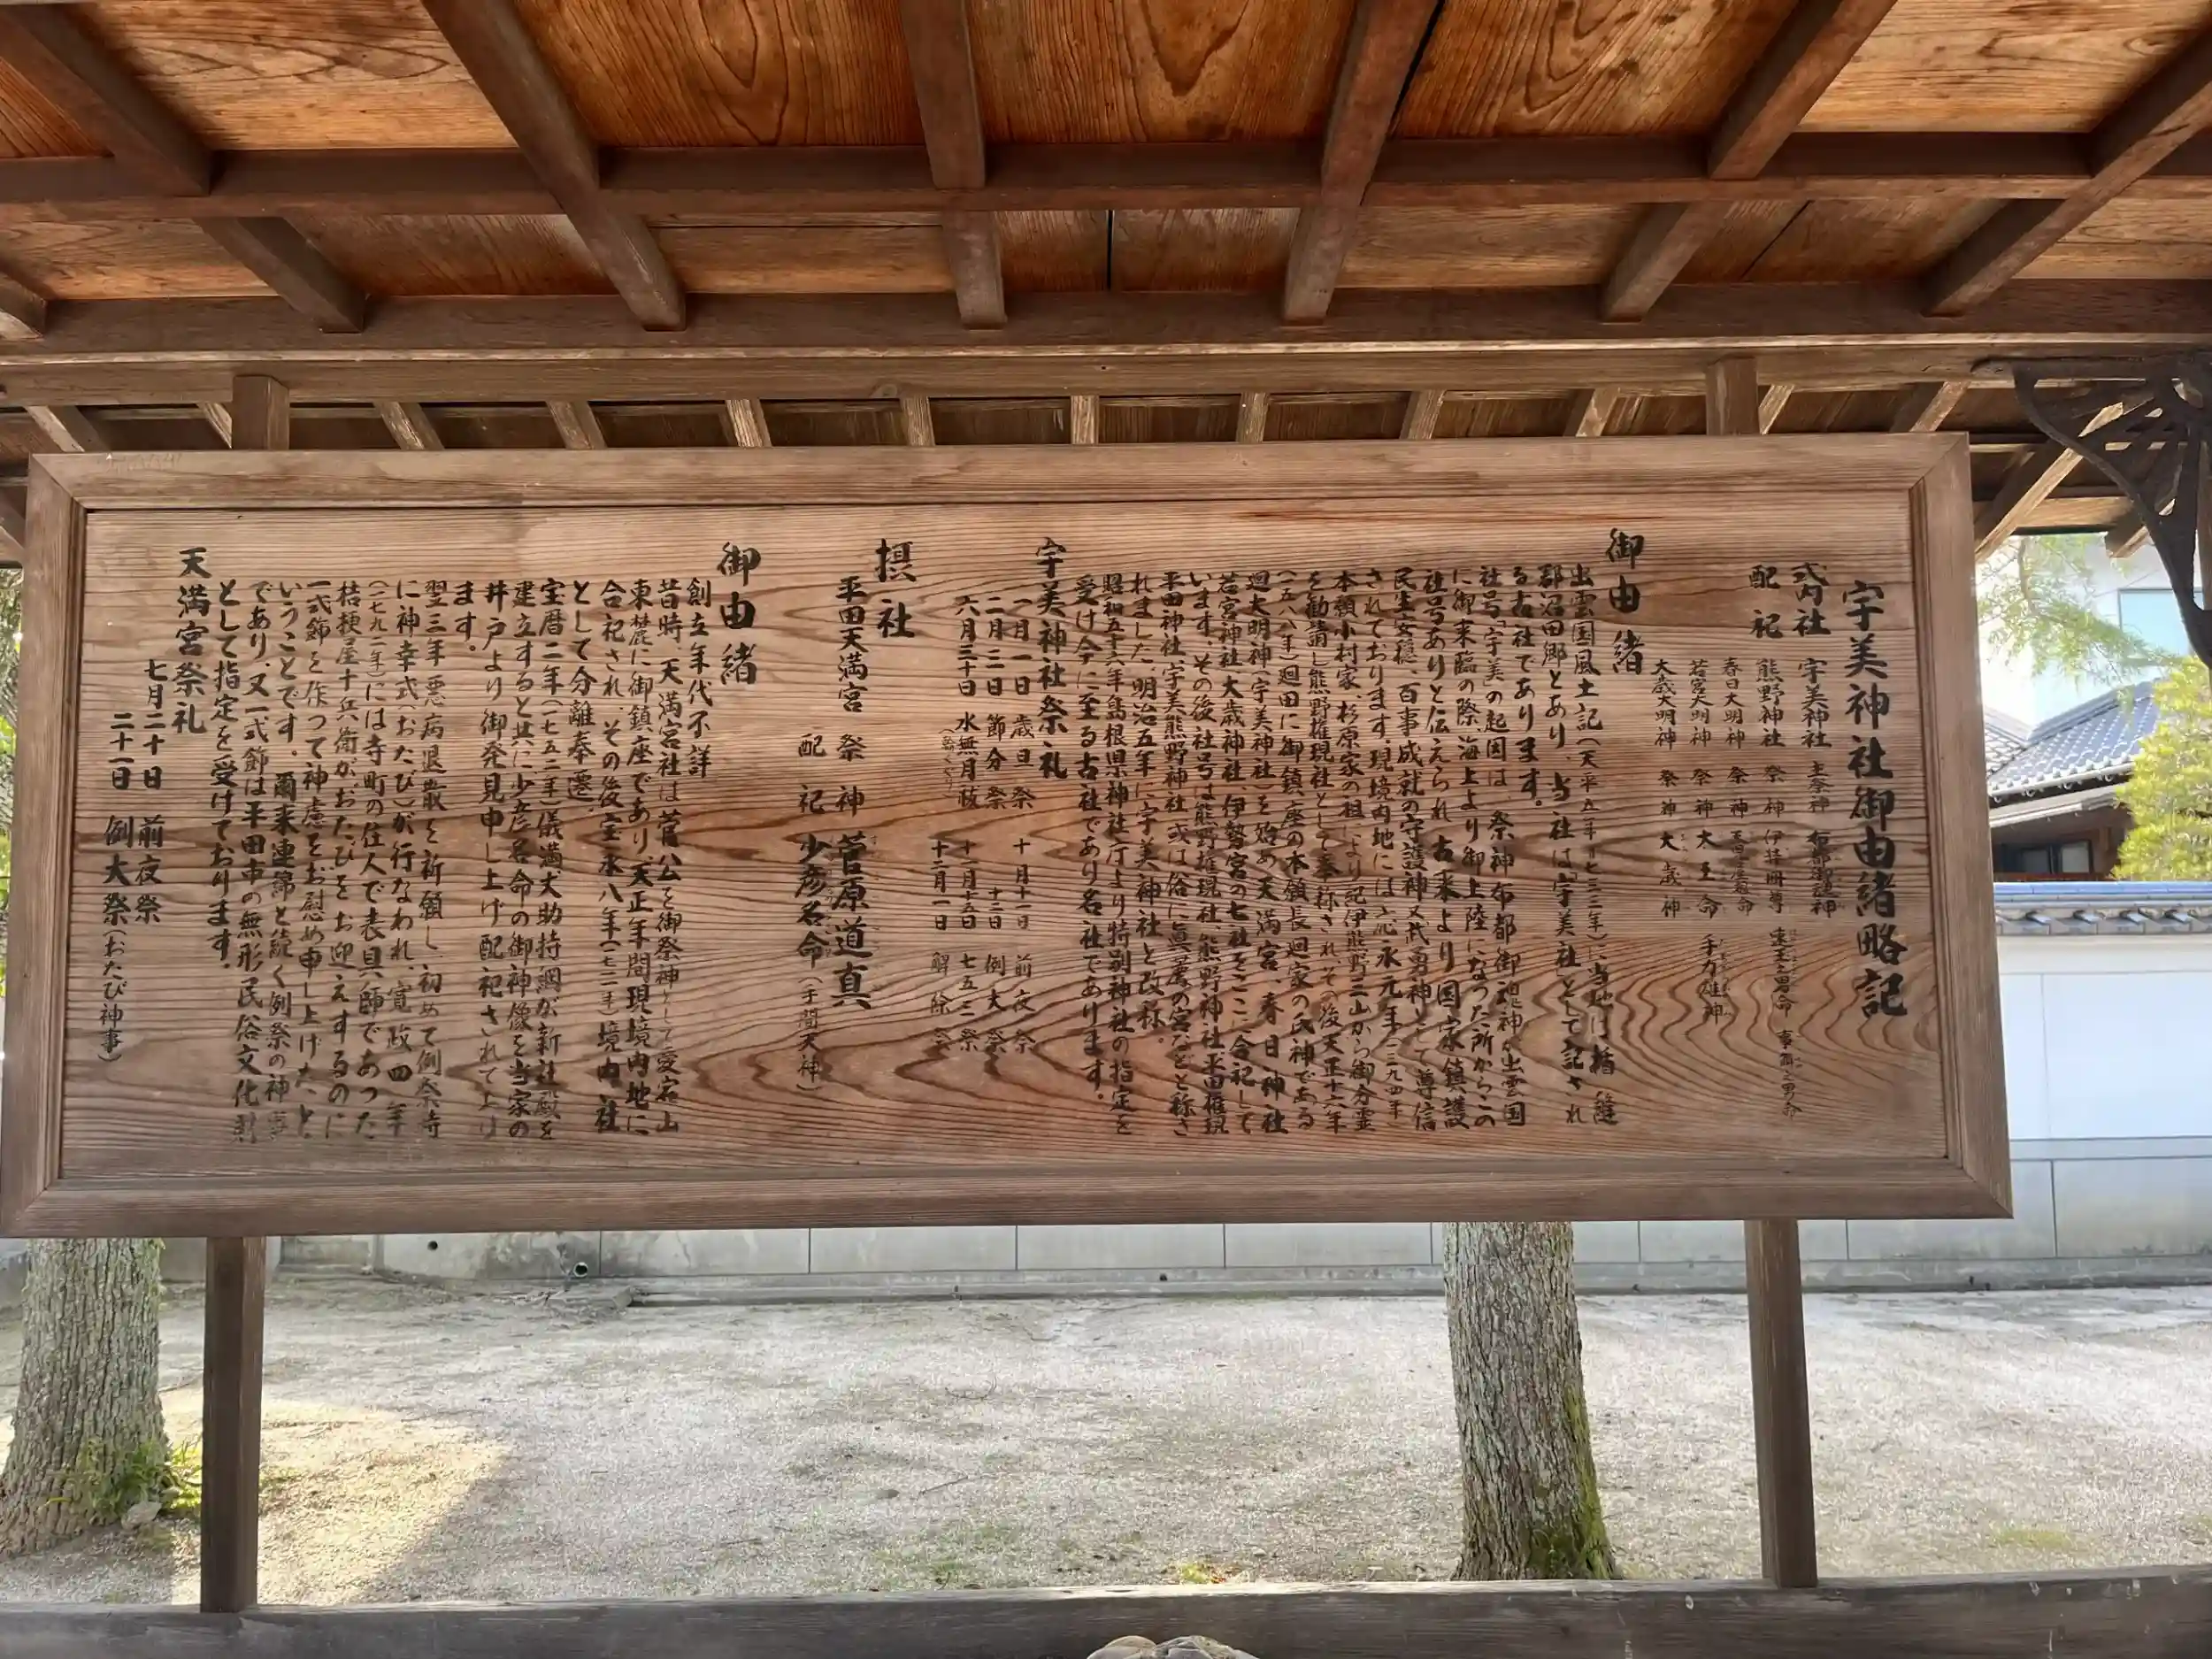 宇美神社御由緒略記
式内社 宇美神社 主祭神 布都御魂神
配祀 熊野神社 祭神 伊弉冊尊 速玉之男命 事解之男命
春日大明神 祭神
若宮大明神 祭神 大玉命 手力雄神
大歳大明神 祭神 大歳神
御由緒
出雲国風土記(天平五年七三三年)に当地は楯縫
郡沼田郷とあり、当社は「宇美社」として記され
る古社であります。
社号「宇美」の起因は、祭神布都御魂神が出雲国
に御来臨の際、海上より御上陸になった所からこの
社号ありと伝えられ古来より国家鎮護
民生安穏、百事成就の守護神又武勇神として尊信
されております。現境内地には応永元年(一三九四年)
本領小村家、杉原家の祖により紀伊熊野三山から御分霊
を勧請し熊野権現社として奉称され、その後天正十六年
(一五八八年)廻田に御鎮座の本領長廻家の氏神である
廻大明神(宇美神社)を始め天満宮、春日神社
若宮神社、大歳神社、伊勢宮の七社をここに合祀して
います。その後社号は熊野権現社、熊野神社、平田権現
平田神社、宇美熊野神社或は俗に眞薦の宮などと称さ
れました。明治五年に宇美神社と改称。
昭和五十六年島根県神社庁より特別神社の指定を
受け今に至る古社であり名社であります。
宇美神社祭礼
一月一日 歳旦祭 十月十一日 前夜祭
二月三日 節分祭 十二日 例大祭
六月三十日 水無月祓 十一月十五日 七五三祭
十二月一日 解除祭
摂社
平田天満宮 祭神 菅原道真
配祀 少彦名命(手間天神)
御由緒
創立年代不詳
昔時、天満宮社は菅公を御祭神として愛宕山
東麓に御鎮座であり、天正年間現境内地に
合祀され、その後宝永八年(一七一一年)境内社
として分離奉遷。
宝暦二年(一七五二年)儀満丈助持綱が新社殿を
建立すると共に少彦名命の御神像を当家の
井戸より御発見申し上げ配祀されており
ます。
翌三年悪病退散を祈願し初めて例祭時
に神幸式(おたび)が行なわれ、寛政四年
(一七九二年)には寺町の住人で表具師であった
桔梗屋十兵衛がおたびをお迎えするのに
一式飾を作って神慮をお慰め申し上げたと
いうことです。爾来連綿と続く例祭の神事
であり、又一式飾は平田市の無形民俗文化財
として指定を受けております。
天満宮祭礼
七月二十日 前夜祭
二十一日 例大祭(おたび神事)